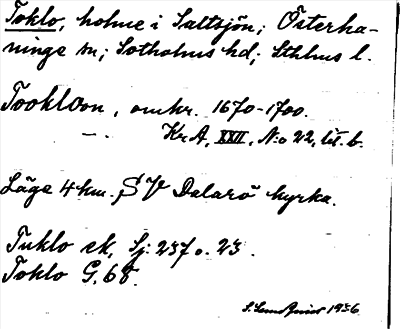 Toklo, holme i Saltsjön; Österha-
ninge sn; Sotholms hd; Sthlms l.
Tookloon, omkr. 1670-1700.
Kr A, XXII, N:o 22, lit. b.
Läge 4 km. SV Dalarö kyrka.
Tuklo sk, Sj: 237 o. 23.
Toklo G, 68.
1936